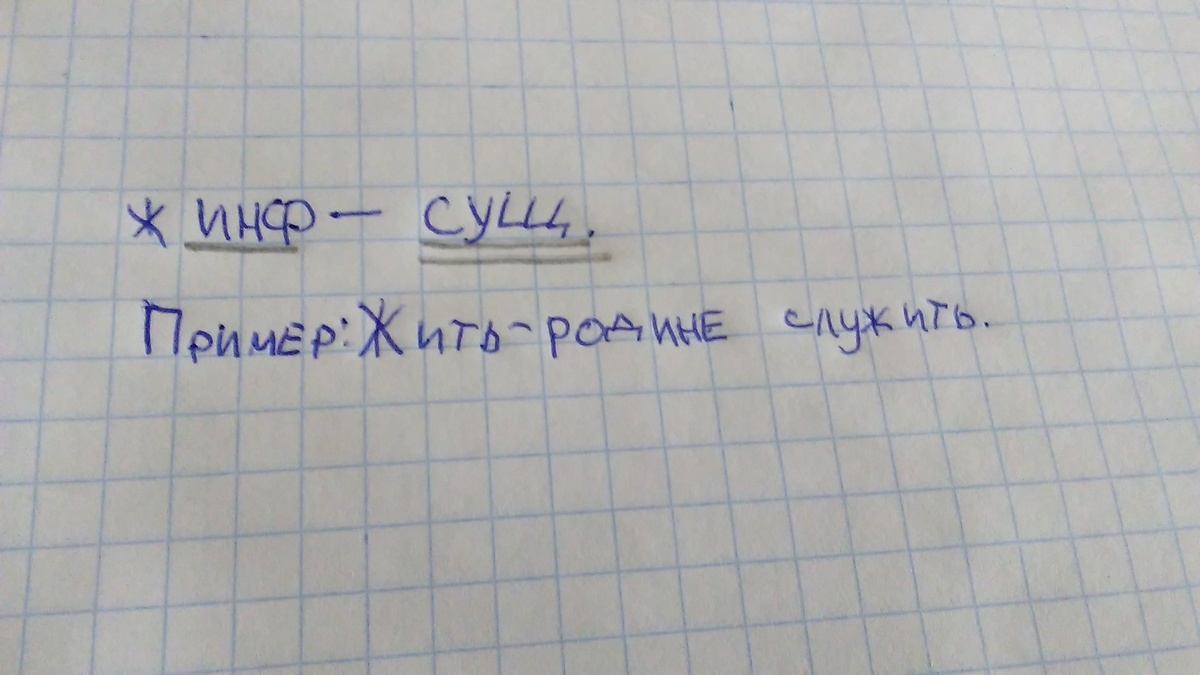 * ИНФ — СУЩ.
Пример: Жить - родине служить.